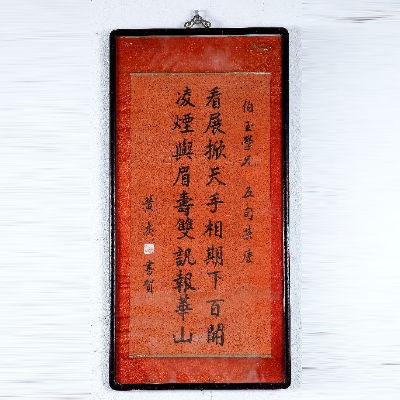 伯玉學兄 五旬榮慶
看展掀天手相期下百開
凌煙與眉壽雙訊報華山
黃 書賀